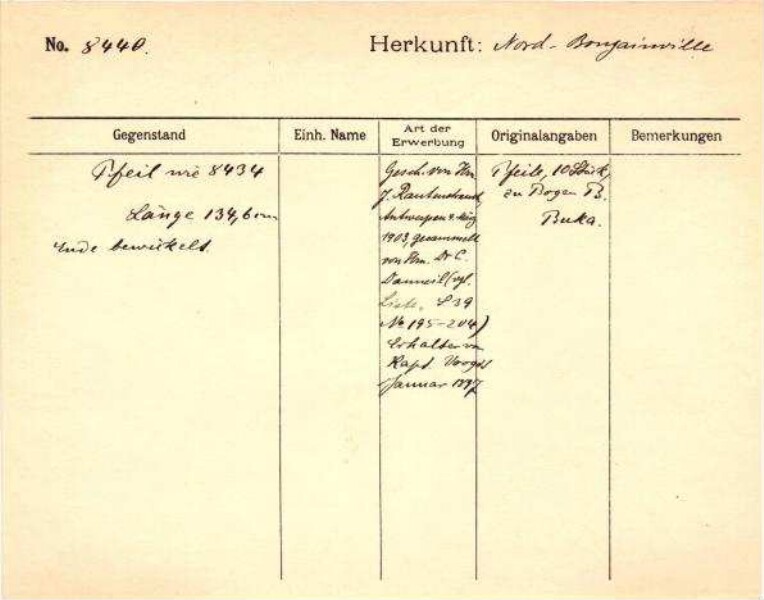 No. 8440.
Herkunft: Nord-Bougainville
Gegenstand
Einh. Name
Art der Erwerbung
Originalangaben
Bemerkungen
Pfeil wie 8434
Länge 134,6 cm
Ende bewickelt.
Gesch. von Hrn
J. Rautenstrauch
Antwerpen
1903, gesammelt
von Hrn. Dr C.
Danneil (vgl.
Liste, S 39
No 195-204)
Erhalten von
Kapt. Voogdt
Januar 1897
Pfeile, 10 Stück,
zu Bogen B.
Buka.